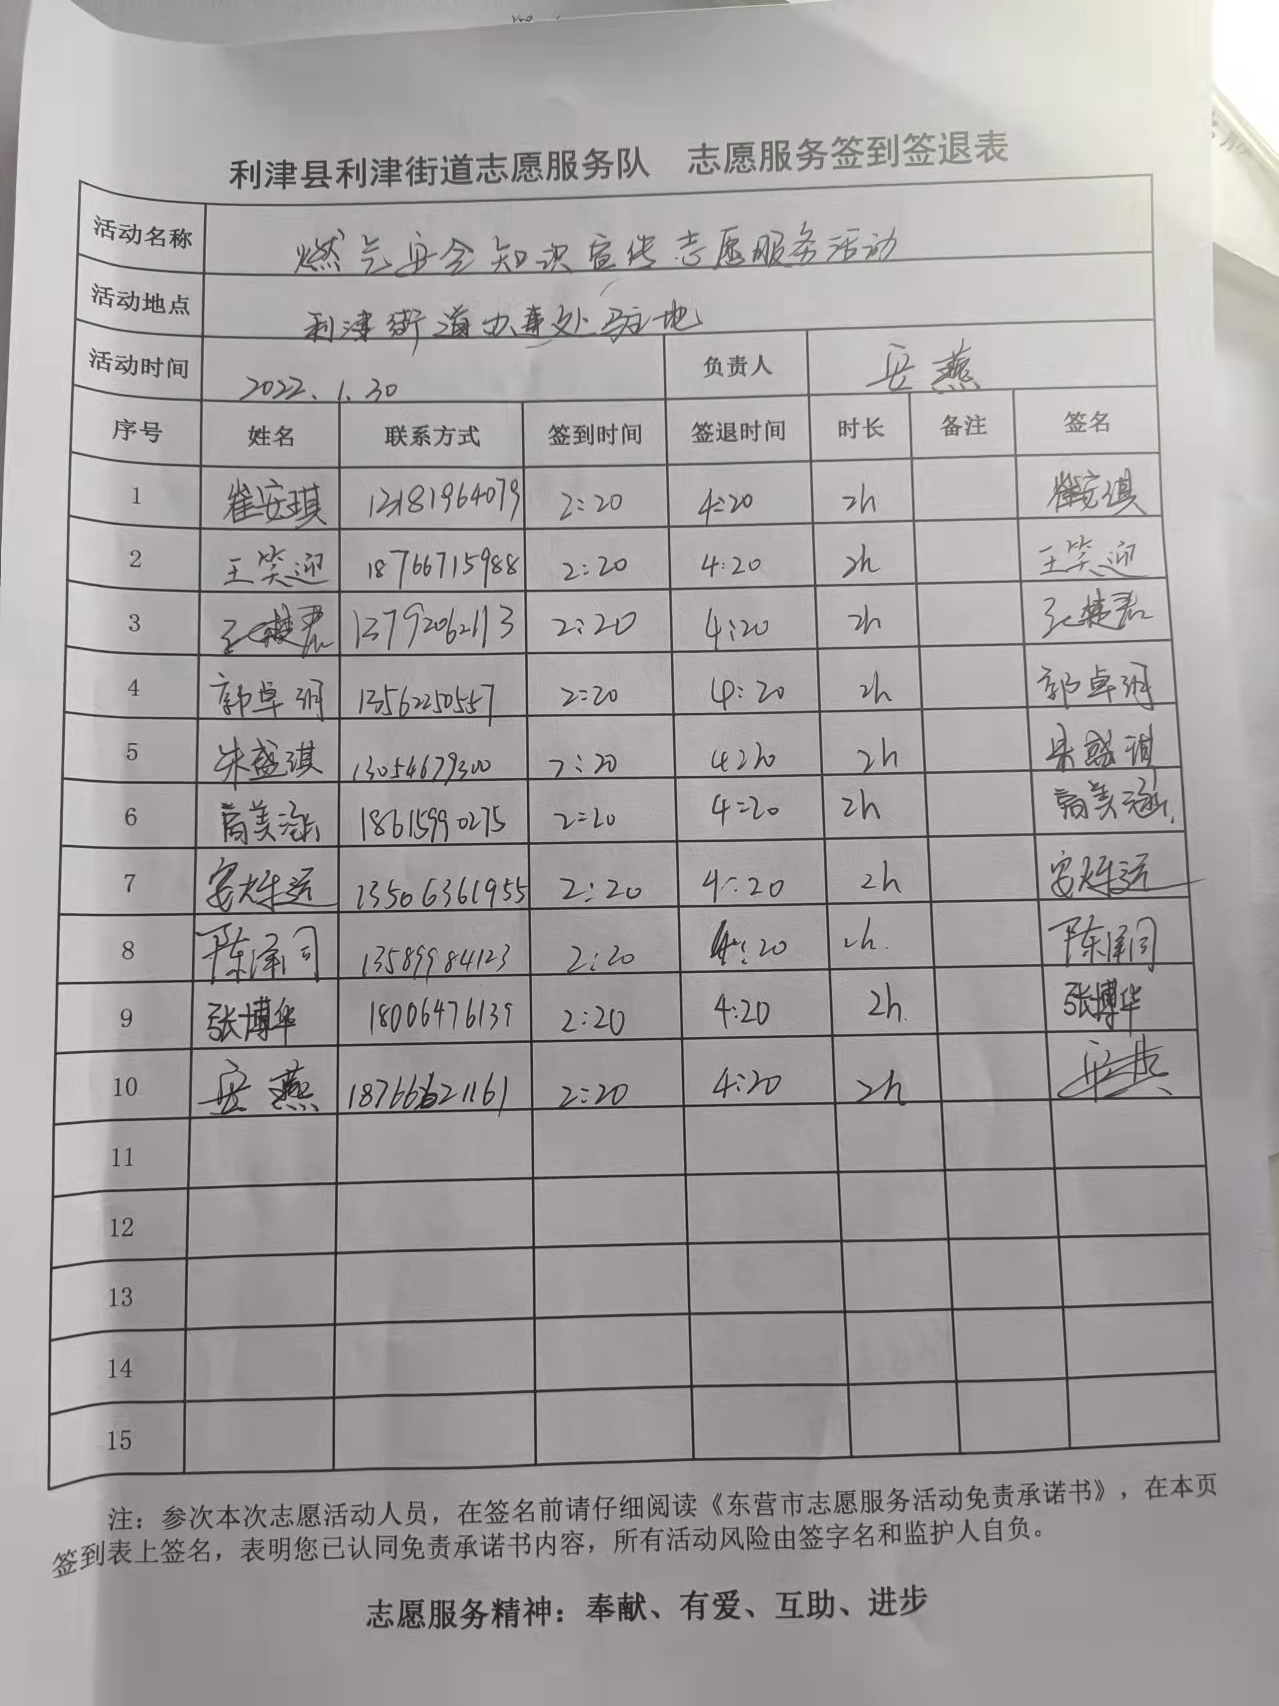 利津县利津街道志愿服务队 志愿服务签到签退表
活动名称 燃气安全知识宣传志愿服务活动
活动地点 利津街道办事处驻地
活动时间 2022.1.30 负责人 安燕
序号 姓名 联系方式 签到时间 签退时间 时长 备注 签名
1 崔安琪 2:20 4:20 2h 崔安琪
2 王笑迎 18766715988 2:20 4:20 2h 王笑迎
3 13792062113 2:20 4:20 2h
4 郭卓 13562250557 2:20 4:20 2h 郭卓
5 朱盛琪 13054679300 2:20 4:20 2h 朱盛琪
6 高美涵 18615990275 2:20 4:20 2h 高美涵
7 13506361955 2:20 4:20 2h
8 陈泽同 13589984123 2:20 4:20 2h. 陈泽同
9 张博华 18006476139 2:20 4:20 2h. 张博华
10 安燕 18766621161 2:20 4:20 2h 安燕
11
12
13
14
15
注：参次本次志愿活动人员，在签名前请仔细阅读《东营市志愿服务活动免责承诺书》，在本页
签到表上签名，表明您已认同免责承诺书内容，所有活动风险由签字名和监护人自负。
志愿服务精神：奉献、有爱、互助、进步